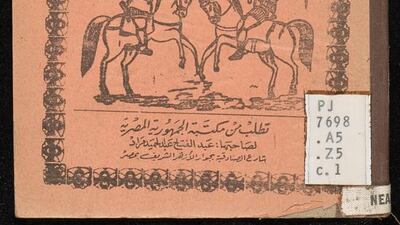 تطلب من مكتبة الجمهورية المصرية
لصاحبها: عبد الفتاح عبد الحميد مراد
بشارع الصنادقية بجوار الأزهر الشريف بمصر
PJ
7698
.A5
.Z5
c.1
NEA